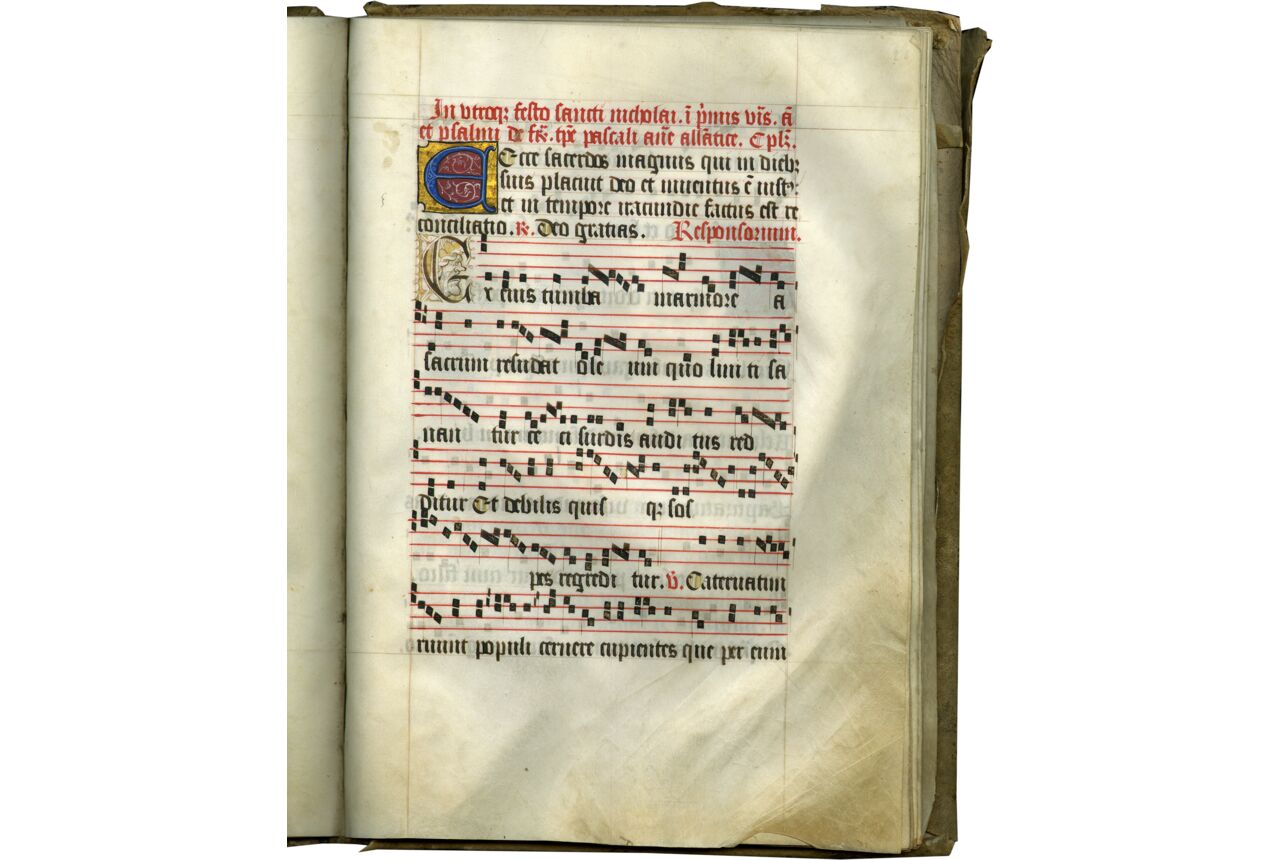 In vtroq; festo sancti nicholai. ī p̄mis vīs. ā
et psalmi de fr̄. tpe pascali ane allāt̄ice. Cpl̄.
Ecce sacerdos magnus qui in dieb;
suis placuit deo et inuentus ē iust9:
et in tempore iracundie factus est re
conciliatio. R̄. Deo gratias. Responsorium.
Ex eius tumba marmore a
sacrum resudat ole um quo lini ti sa
nan tur ce ci surdis audi tus red
ditur Et debilis quis q; sos
pes regredi tur. V̄. Cateruatim
ruunt populi cernere cupientes que per eum